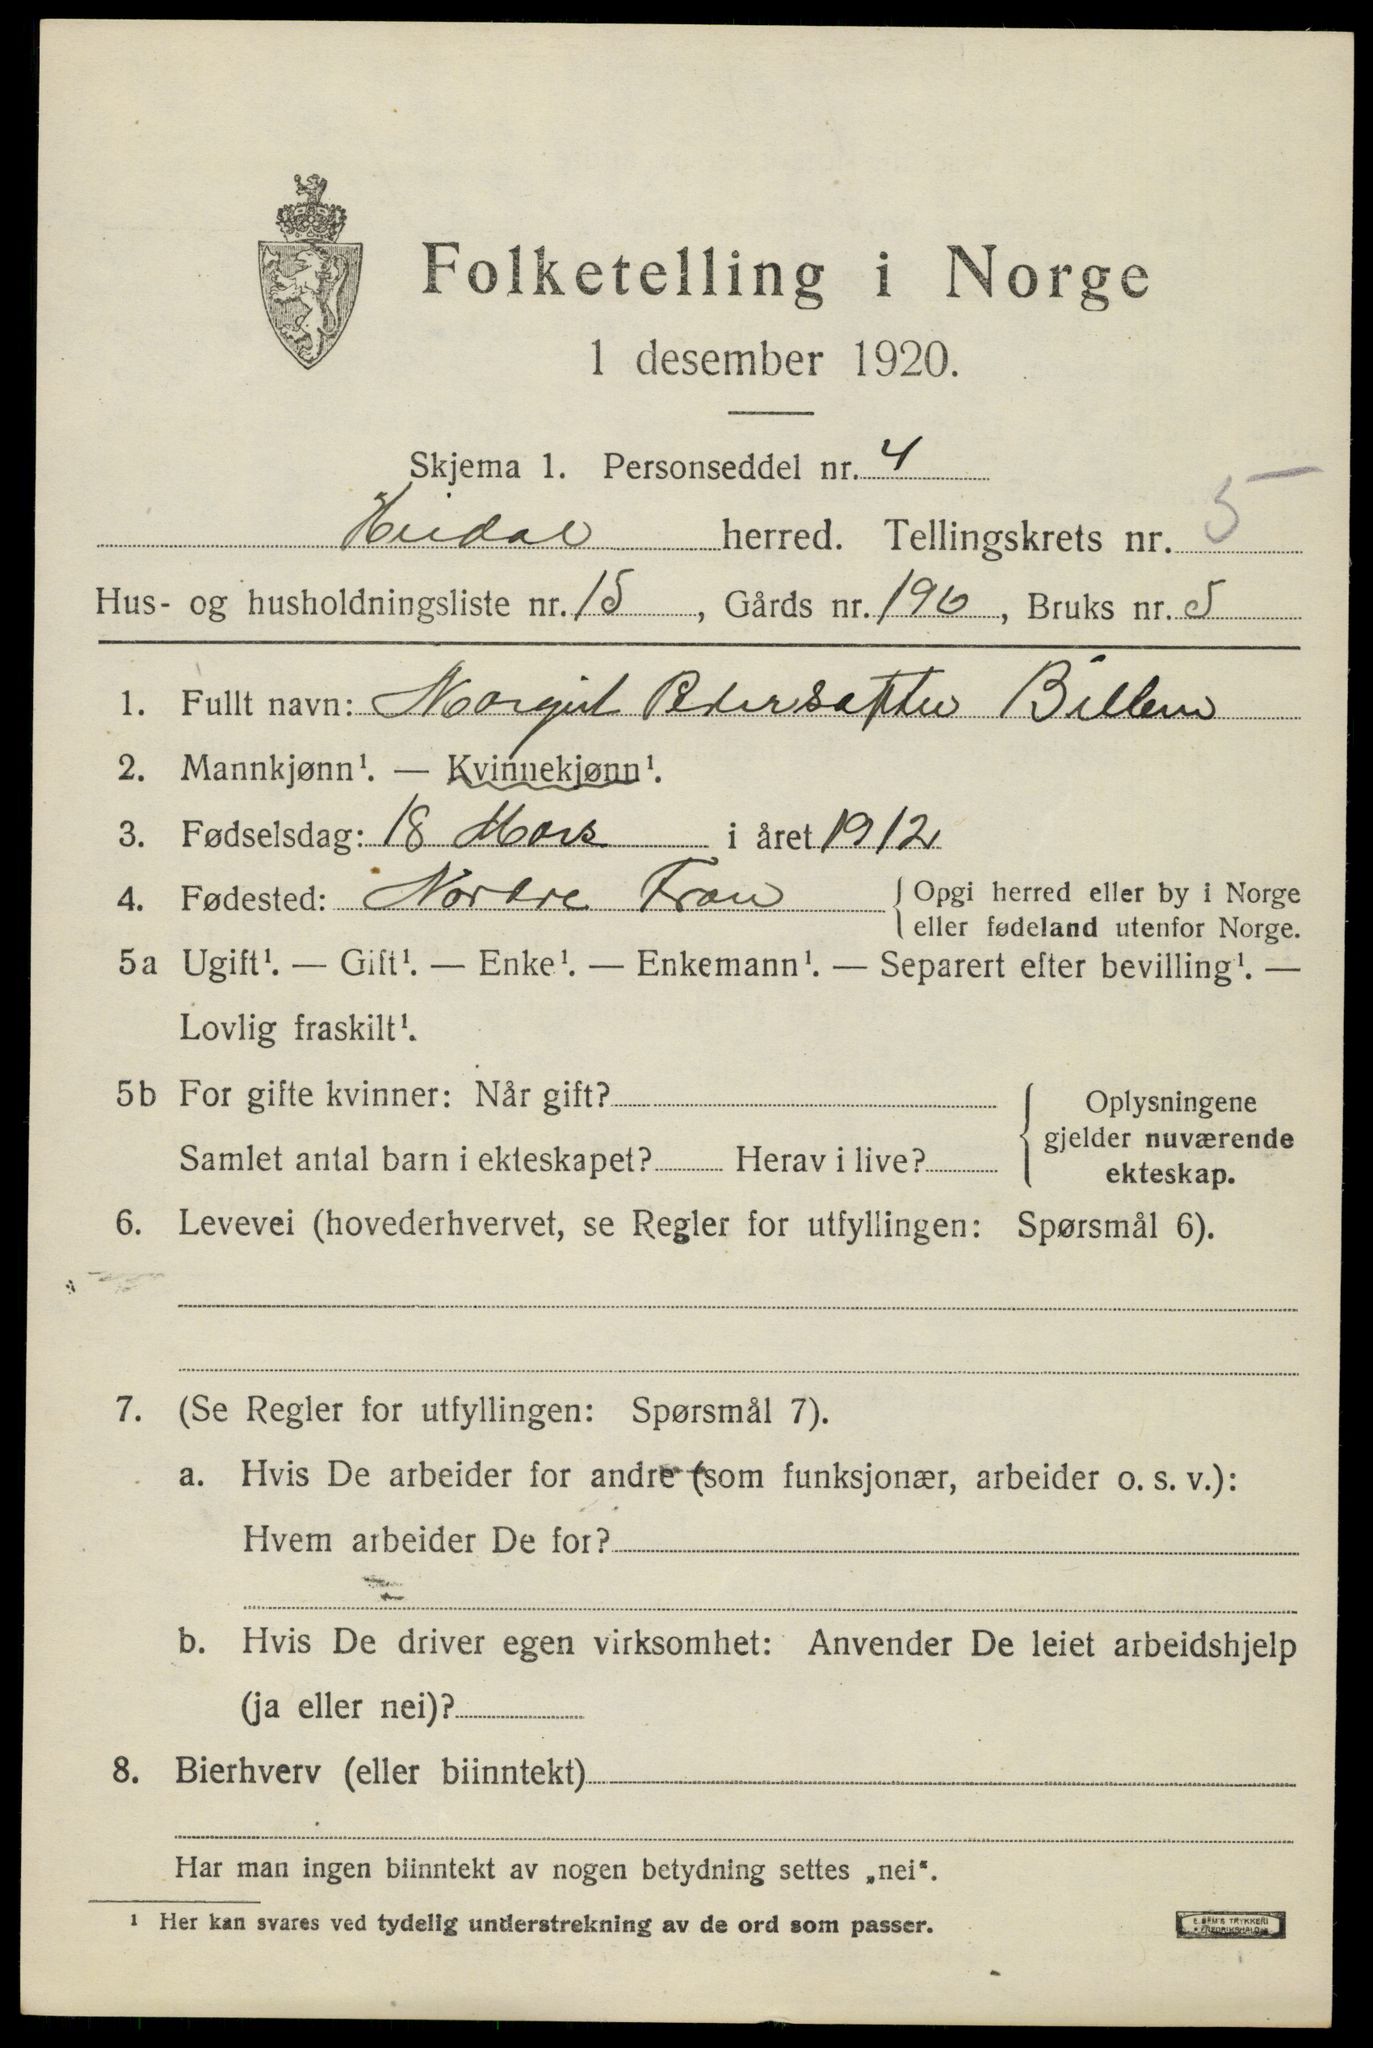 Folketelling i Norge
1 desember 1920.
Skjema 1. Personseddel nr. 4
Heidal herred. Tellingskrets nr. 5
Hus- og husholdningsliste nr. 15, Gårds nr. 190, Bruks nr. 5
1. Fullt navn: Margit Pedersdatter Billem
2. Mannkjønn¹. — Kvinnekjønn¹.
3. Fødselsdag: 18 Mars i året 1912
4. Fødested: Nordre Fron { Opgi herred eller by i Norge
eller fødeland utenfor Norge.
5a Ugift¹. — Gift¹. — Enke¹. — Enkemann¹. — Separert efter bevilling¹. —
Lovlig fraskilt¹.
5b For gifte kvinner: Når gift?
Samlet antal barn i ekteskapet? Herav i live?
{ Oplysningene
gjelder nuværende
ekteskap.
6. Levevei (hovederhvervet, se Regler for utfyllingen: Spørsmål 6).
7. (Se Regler for utfyllingen: Spørsmål 7).
a. Hvis De arbeider for andre (som funksjonær, arbeider o. s. v.):
Hvem arbeider De for?
b. Hvis De driver egen virksomhet: Anvender De leiet arbeidshjelp
(ja eller nei)?
8. Bierhverv (eller biinntekt)
Har man ingen biinntekt av nogen betydning settes „nei“.
¹ Her kan svares ved tydelig understrekning av de ord som passer.
E. SEM'S TRYKKERI
FREDRIKSHALD